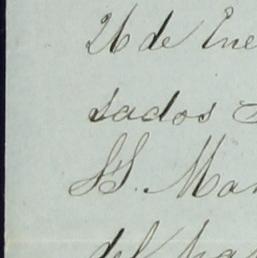 26 de Ene
sados
SS. Mar
del